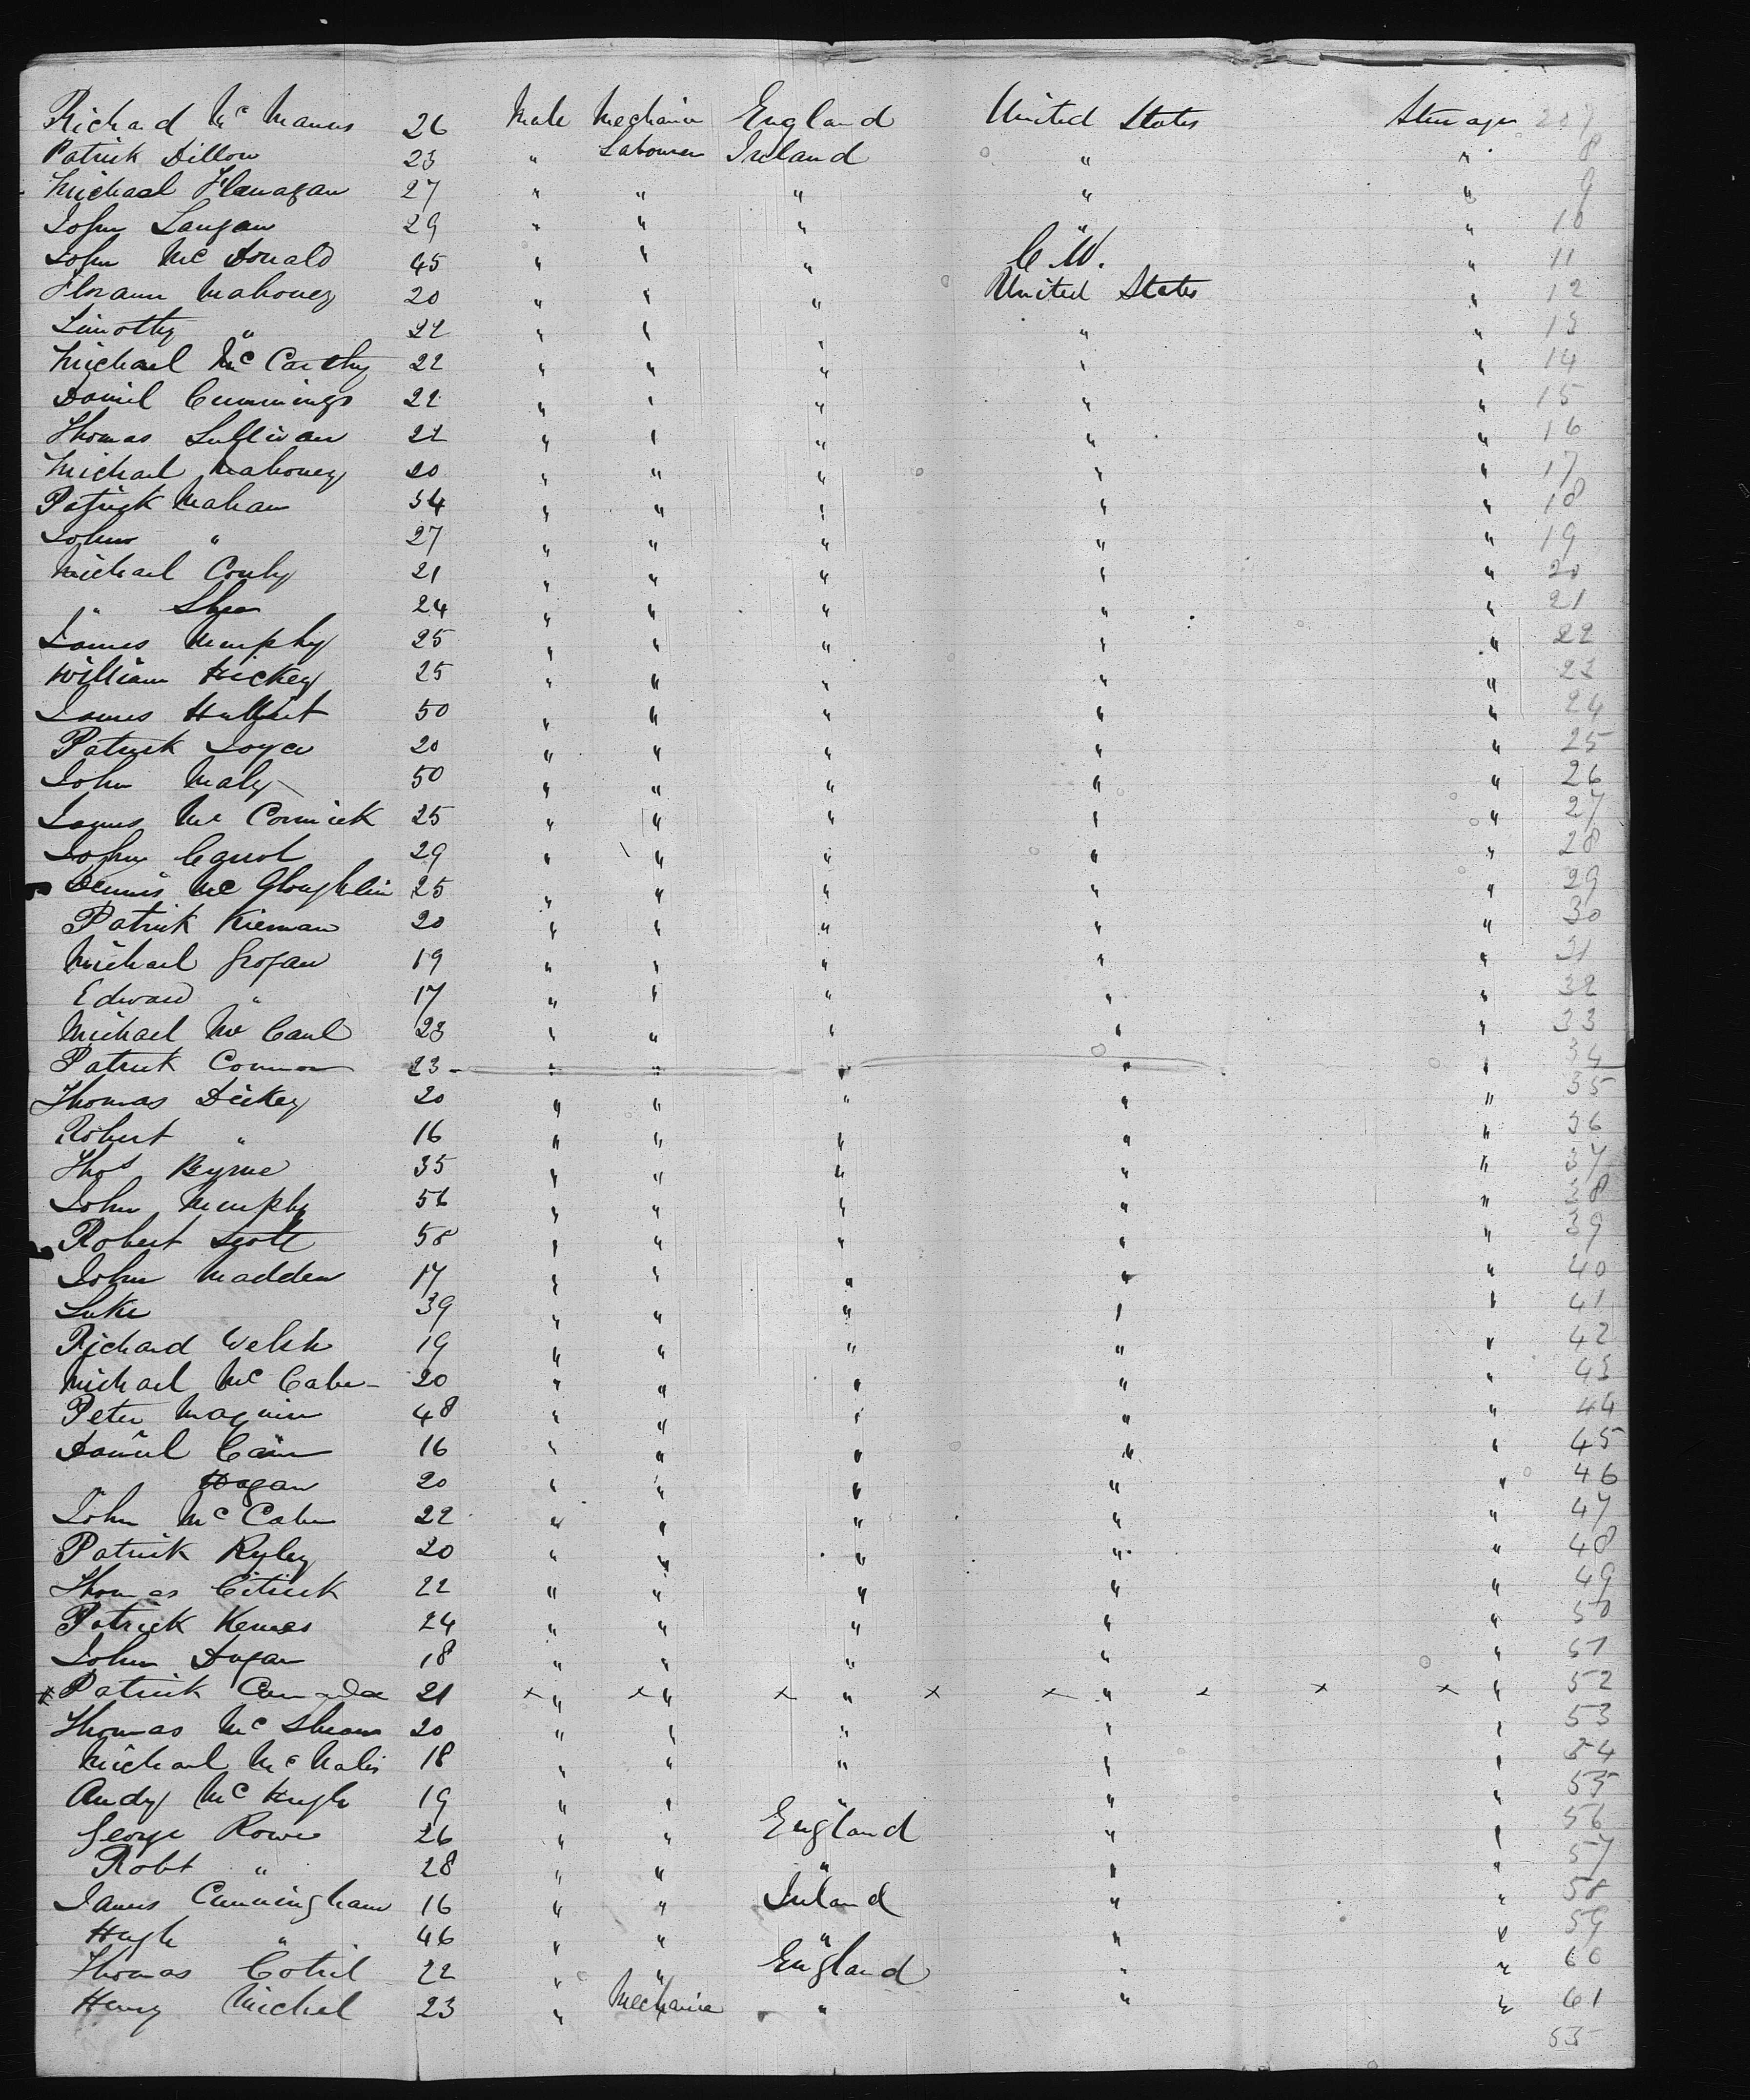 Richard Mc Manus 26 Male Mechanic England United States Steerage 207
Patrick Dillon 23 " Labourer Ireland " " 8
Michael Flanagan 27 " " " " " 9
John Langan 29 " " " " " 10
John Mc Donald 45 " " " C.W. " 11
Florann Mahoney 20 " " " United States " 12
Timothy " 22 " " " " " 13
Michael Mc Carthy 22 " " " " " 14
Daniel Cummings 22 " " " " " 15
Thomas Sullivan 22 " " " " " 16
Michael Mahoney 20 " " " " " 17
Patrick Mahan 34 " " " " " 18
John " 27 " " " " " 19
Michael Conly 21 " " " " " 20
" Shea 24 " " " " " 21
James Murphy 25 " " " " " 22
William Hickey 25 " " " " " 23
James 50 " " " " " 24
Patrick Joyce 20 " " " " " 25
John Maly 50 " " " " " 26
James Mc Cormick 25 " " " " " 27
John Carrol 29 " " " " " 28
Dennis Mc Gloughlin 25 " " " " " 29
Patrick Kiernan 20 " " " " " 30
Michael Grogan 19 " " " " " 31
Edward " 17 " " " " " 32
Michael Mc Caul 23 " " " " " 33
Patrick Connor 23 " " " " " 34
Thomas Dickey 20 " " " " " 35
Robert " 16 " " " " " 36
Thos Byrne 35 " " " " " 37
John Murphy 56 " " " " " 38
Robert Scott 58 " " " " " 39
John Madden 17 " " " " " 40
Luke 39 " " " " " 41
Richard Welsh 19 " " " " " 42
Michael Mc Cabe 20 " " " " " 43
Peter Maguire 48 " " " " " 44
Daniel Cain 16 " " " " " 45
" Hogan 20 " " " " " 46
John Mc Cabe 22 " " " " " 47
Patrick Ryley 20 " " " " " 48
Thomas 22 " " " " " 49
Patrick 24 " " " " " 50
John Dugan 18 " " " " " 51
x Patrick 21 x " x " x " x x " x x x " 52
Thomas Mc 20 " " " " " 53
Michael Mc Nalis 18 " " " " " 54
Andy Mc Hugh 19 " " " " " 55
George Rowe 26 " " England " " 56
Robt " 28 " " " " " 57
James Cunningham 16 " " Ireland " " 58
Hugh " 46 " " " " " 59
Thomas Cotril 22 " " England " " 60
Henry Michel 23 " Mechanic " " " 61
55